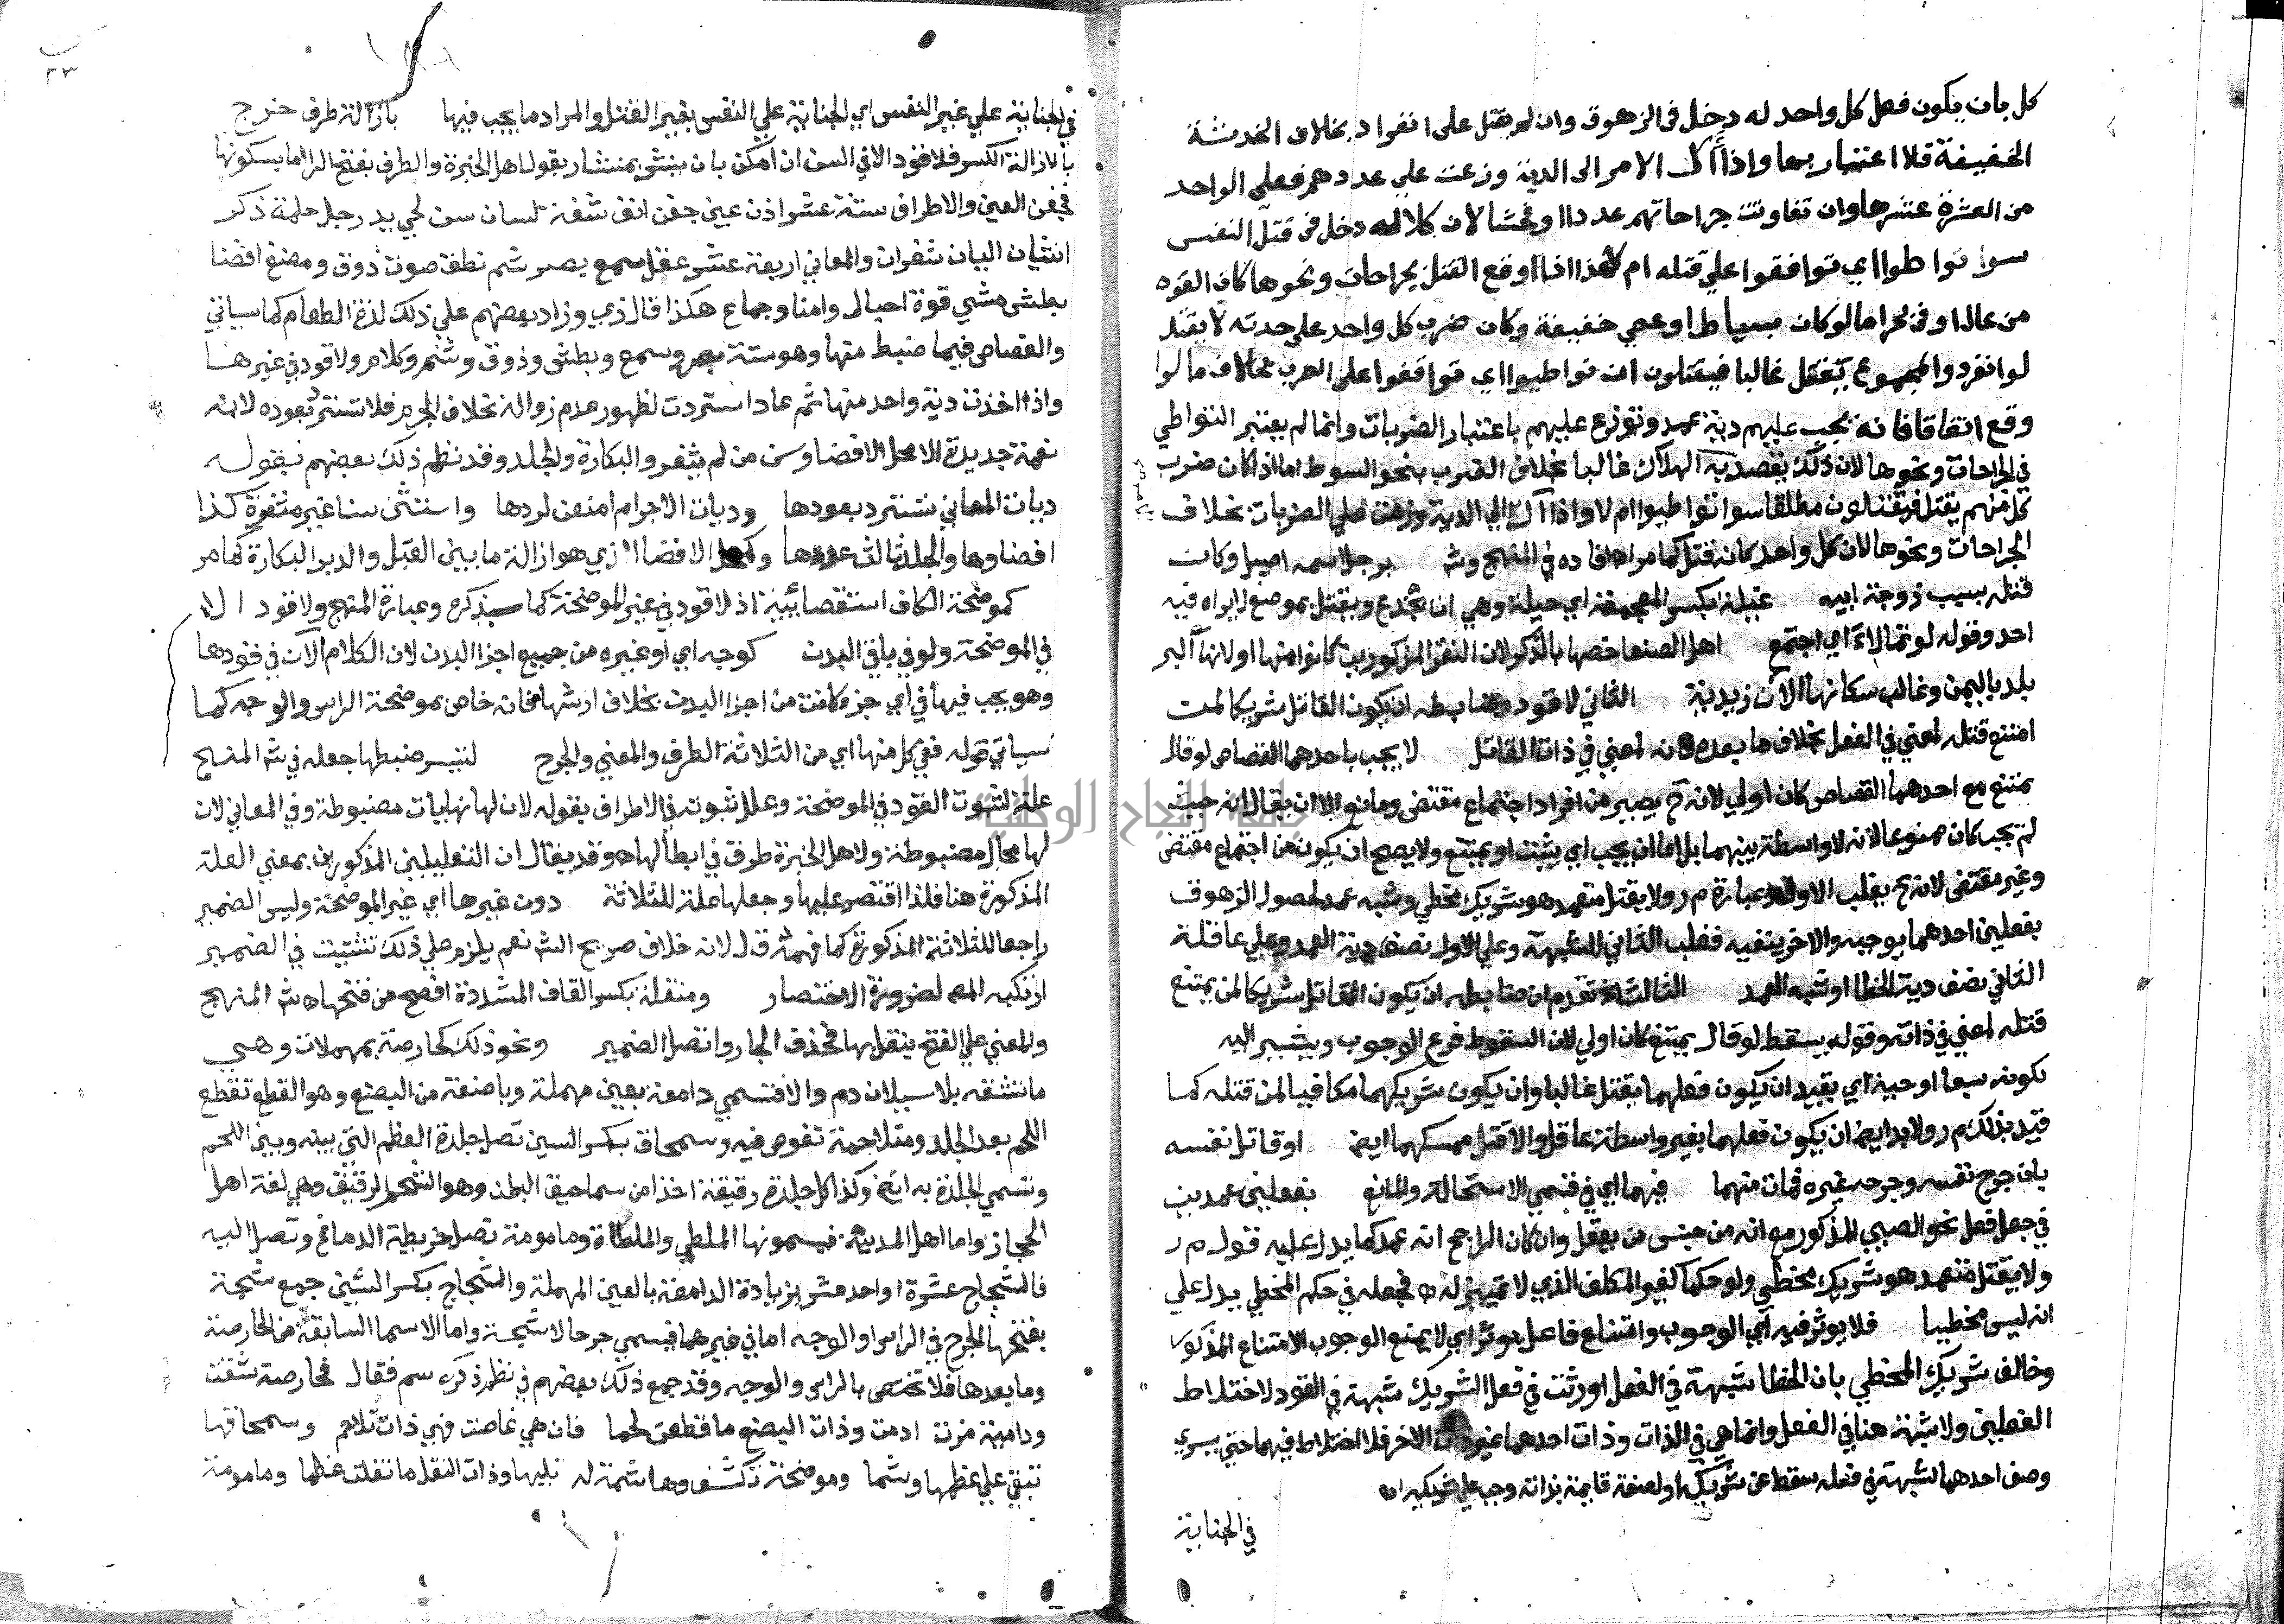 كل بان يكون فعل كل واحد له دخل في الزهوق وان لم يقتل على انفراد بخلاف الخدشة
الخفيفة فلا اعتبار بها واذا آل الامر الى الدية وزعت علي عددهم فعلى الواحد
من العشرة عشرها وان تفاوتت جراحاتهم عددا او فحشا لان كلا له دخل في قتل النفس
سوا تواطوا اي توافقوا علي قتله ام لا هذا اذا وقع القتل بجراحات ونحوها كان القوه
من عال او في بحر اما لو كان بسياط او عصي خفيفة وكان ضرب كل واحد علي حدته لا يقتل
لو انفرد والمجموع يقتل غالبا فيقتلون ان تواطيوا اي توافقوا على الضرب بخلاف ما لو
وقع اتفاقا فانه يجب عليهم دية عمد وتوزع عليهم باعتبار الضربات وانما لم يعتبر التواطي
في الجراحات ونحوها لان ذلك يقصد به الهلاك غالبا بخلاف الضرب بنحو السوط اما اذا كان ضرب
كل منهم يقتل فيقتلون مطلقا سوا تواطيوا ام لا واذا آل الي الدية وزعت علي الضربات بخلاف
الجراحات ونحوها لان كل واحد كانه قتل كما مر اه افاده في المنهج وش برجل اسمه اصيل وكان
قتله بسبب زوجة ابيه غيلة بكسر المعجمة اي حيلة وهي ان يخدع ويقتل بموضع لا يراه فيه
احد وقوله لو تمالا اي اجتمع اهل الصنعا خصها بالذكر لان النفر المذكورين كانوا منها او لانها اكبر
بلد باليمن وغالب سكانها الآن زيدية الثاني لا قود وضابطه ان يكون القاتل شريكا لمن
امتنع قتله لمعني في الفعل بخلاف ما بعده فانه لمعني في ذات القاتل لا يجب باحدهما القصاص لو قال
يمتنع مع احدهما القصاص كان اولي لانه ح يصير من افراد اجتماع مقتض ومانع الا ان يقال انه حيث
لم يجب كان ممنوعا لانه لا واسطة بينهما بل اما ان يجب اي يثبت او يمتنع ولا يصح ان يكون من اجتماع مقتض
وغير مقتض لانه ح يغلب الاول وعبارة م ر ولا يقتل متعمد هو شريك مخطي وشبه عمد لحصول الزهوق
بفعلين احدهما يوجبه والاخر ينفيه فغلب الثاني للشبهة وعلي الاول نصف دية العمد وعلي عاقلة
الثاني نصف دية الخطا او شبه العمد الثالث تقدم ان ضابطه ان يكون القاتل شريكا لمن يمتنع
قتله لمعني في ذاته وقوله يسقط لو قال يمتنع كان اولي لان السقوط فرع الوجوب ويشير اليه
بكونه سبعا او حية اي يقيد ان يكون فعلهما يقتل غالبا وان يكون شريكهما مكافيا لمن قتله كما
قيد بذلك م ر ولا بد ايضا ان يكون فعلهما بغير واسطة عاقل والا قتل ممسكهما ايضا او قاتل نفسه
بان جرح نفسه وجرحه غيره فمات منهما فيهما اي في قسمي الاستحالة والمانع بفعلين عمدين
في جعل فعل نحو الصبي المذكور مع انه من جنس من يعقل وان كان الراجح انه عمد كما يدل عليه قول م ر
ولا يقتل متعمد هو شريك مخطي ولو حكما كغير المكلف الذي لا تمييز له اه فجعله في حكم المخطي يدل علي
انه ليس مخطيا فلا يوثر فيه اي الوجوب وامتناع فاعل يوثر اي لا يمنع الوجوب الامتناع المذكور
وخالف شريك المخطي بان الخطا شبهة في الفعل اورثت في فعل الشريك شبهة في القود لاختلاط
الفعلين ولا شبهة هنا في الفعل وانما هي في الذات وذات احدهما غير ذات الاخر فلا اختلاط فيهما حتي يسري
وصف احدهما لشبهة في فعله سقط عن شريكه او لصفة قايمة بذاته وجب علي شريكه اه
في الجناية
في الجناية علي غير النفس اي الجناية علي النفس بغير القتل والمراد ما يجب فيها بازالة طرف خرج
بالازالة الكسر فلا قود الا في السن ان امكن بان ينشر بمنشار بقول اهل الخبرة والطرف بفتح الرا اما بسكونها
فجفن العين والاطراف ستة عشر اذن عين جفن انف شفة لسان سن لحي يد رجل حلمة ذكر
انثيان اليان شفران والمعاني اربعة عشر عقل سمع بصر شم نطق صوت ذوق ومضغ افضا
بطش مشي قوة احبال وامنا وجماع هكذا قال ذي وزاد بعضهم علي ذلك لذة الطعام كما سياتي
والقصاص فيما ضبط منها وهو ستة بصر وسمع وبطش وذوق وشم وكلام ولا قود في غيرها
واذا اخذت دية واحد منها ثم عاد استردت لظهور عدم زواله بخلاف الجرم فلا تسترد بعوده لانه
نعمة جديدة الا محل الافضا وسن من لم يثغر والبكارة والجلد وقد نظم ذلك بعضهم بقوله
ديات المعاني تسترد بعودها وديات الاجرام امنعن لردها واستثن سنا غير مثغرة كذا
افضاوها والجلد ثالث عدها ومحل الافضا الذي هو ازالة ما بين القبل والدبر البكارة كما مر
كموضحة الكاف استقصائية اذ لا قود في غير الموضحة كما سيذكره وعبارة المنهج ولا قود الا
في الموضحة ولو في باقي البدن كوجه اي او غيره من جميع اجزا البدن لان الكلام الآن في قودها
وهو يجب فيها في اي جزء كانت من اجزا البدن بخلاف ارشها فانه خاص بموضحة الراس والوجه كما
سياتي قوله ففي كل منها اي من الثلاثة الطرف والمعني والجرح لتيسر ضبطها جعله في ش المنهج
علة لثبوت القود في الموضحة وعلل ثبوته في الاطراف بقوله لان لها نهايات مضبوطة وفي المعاني لان
لها محال مضبوطة ولاهل الخبرة طرق في ابطالها اه وقد يقال ان التعليلين المذكورين بمعني العلة
المذكورة هنا فلذا اقتصر عليها وجعلها علة للثلاثة دون غيرها اي غير الموضحة وليس الضمير
راجعا للثلاثة المذكورة كما فهمه ق ل لانه خلاف صريح الش نعم يلزم علي ذلك تشتيت في الضمير
ارتكبه المص لضرورة الاختصار ومنقلة بكسر القاف المشددة افصح من فتحها اه ش المنهج
والمعني علي الفتح ينقل بها فحذف الجار واتصل الضمير ونحو ذلك كحارصة بمهملات وهي
ما تشقه بلا سيلان دم والا فتسمي دامعة بعين مهملة وباضعة من البضع وهو القطع تقطع
اللحم بعد الجلد ومتلاحمة تغوص فيه وسمحاق بكسر السين تصل جلدة العظم التي بينه وبين اللحم
وتسمي الجلدة به ايضا وكذا كل جلدة رقيقة اخذا من سماحيق البطن وهو الشحم الرقيق وهي لغة اهل
الحجاز واما اهل المدينة فيسمونها الملطي والملطاة ومامومة تصل خريطة الدماغ وتصل اليه
فالشجاج عشرة او احد عشر بزيادة الدامعة بالعين المهملة والشجاج بكسر الشين جمع شجة
بفتحها الجرح في الراس او الوجه اما في غيرهما فيسمي جرحا لا شجة واما الاسما السابقة من الحارصة
وما بعدها فلا تختص بالراس والوجه وقد جمع ذلك بعضهم في نظم ذكره سم فقال فحارصة شقت
ودامية مزت ادمت وذات البضع ما قطعن لحما فان هي غاصت فهي ذات تلاحم وسمحاقها
تبقي علي عظمها وشما وموضحة تكشف وهاشمة له تليها وذات النقل ما نقلت عظما ومامومة